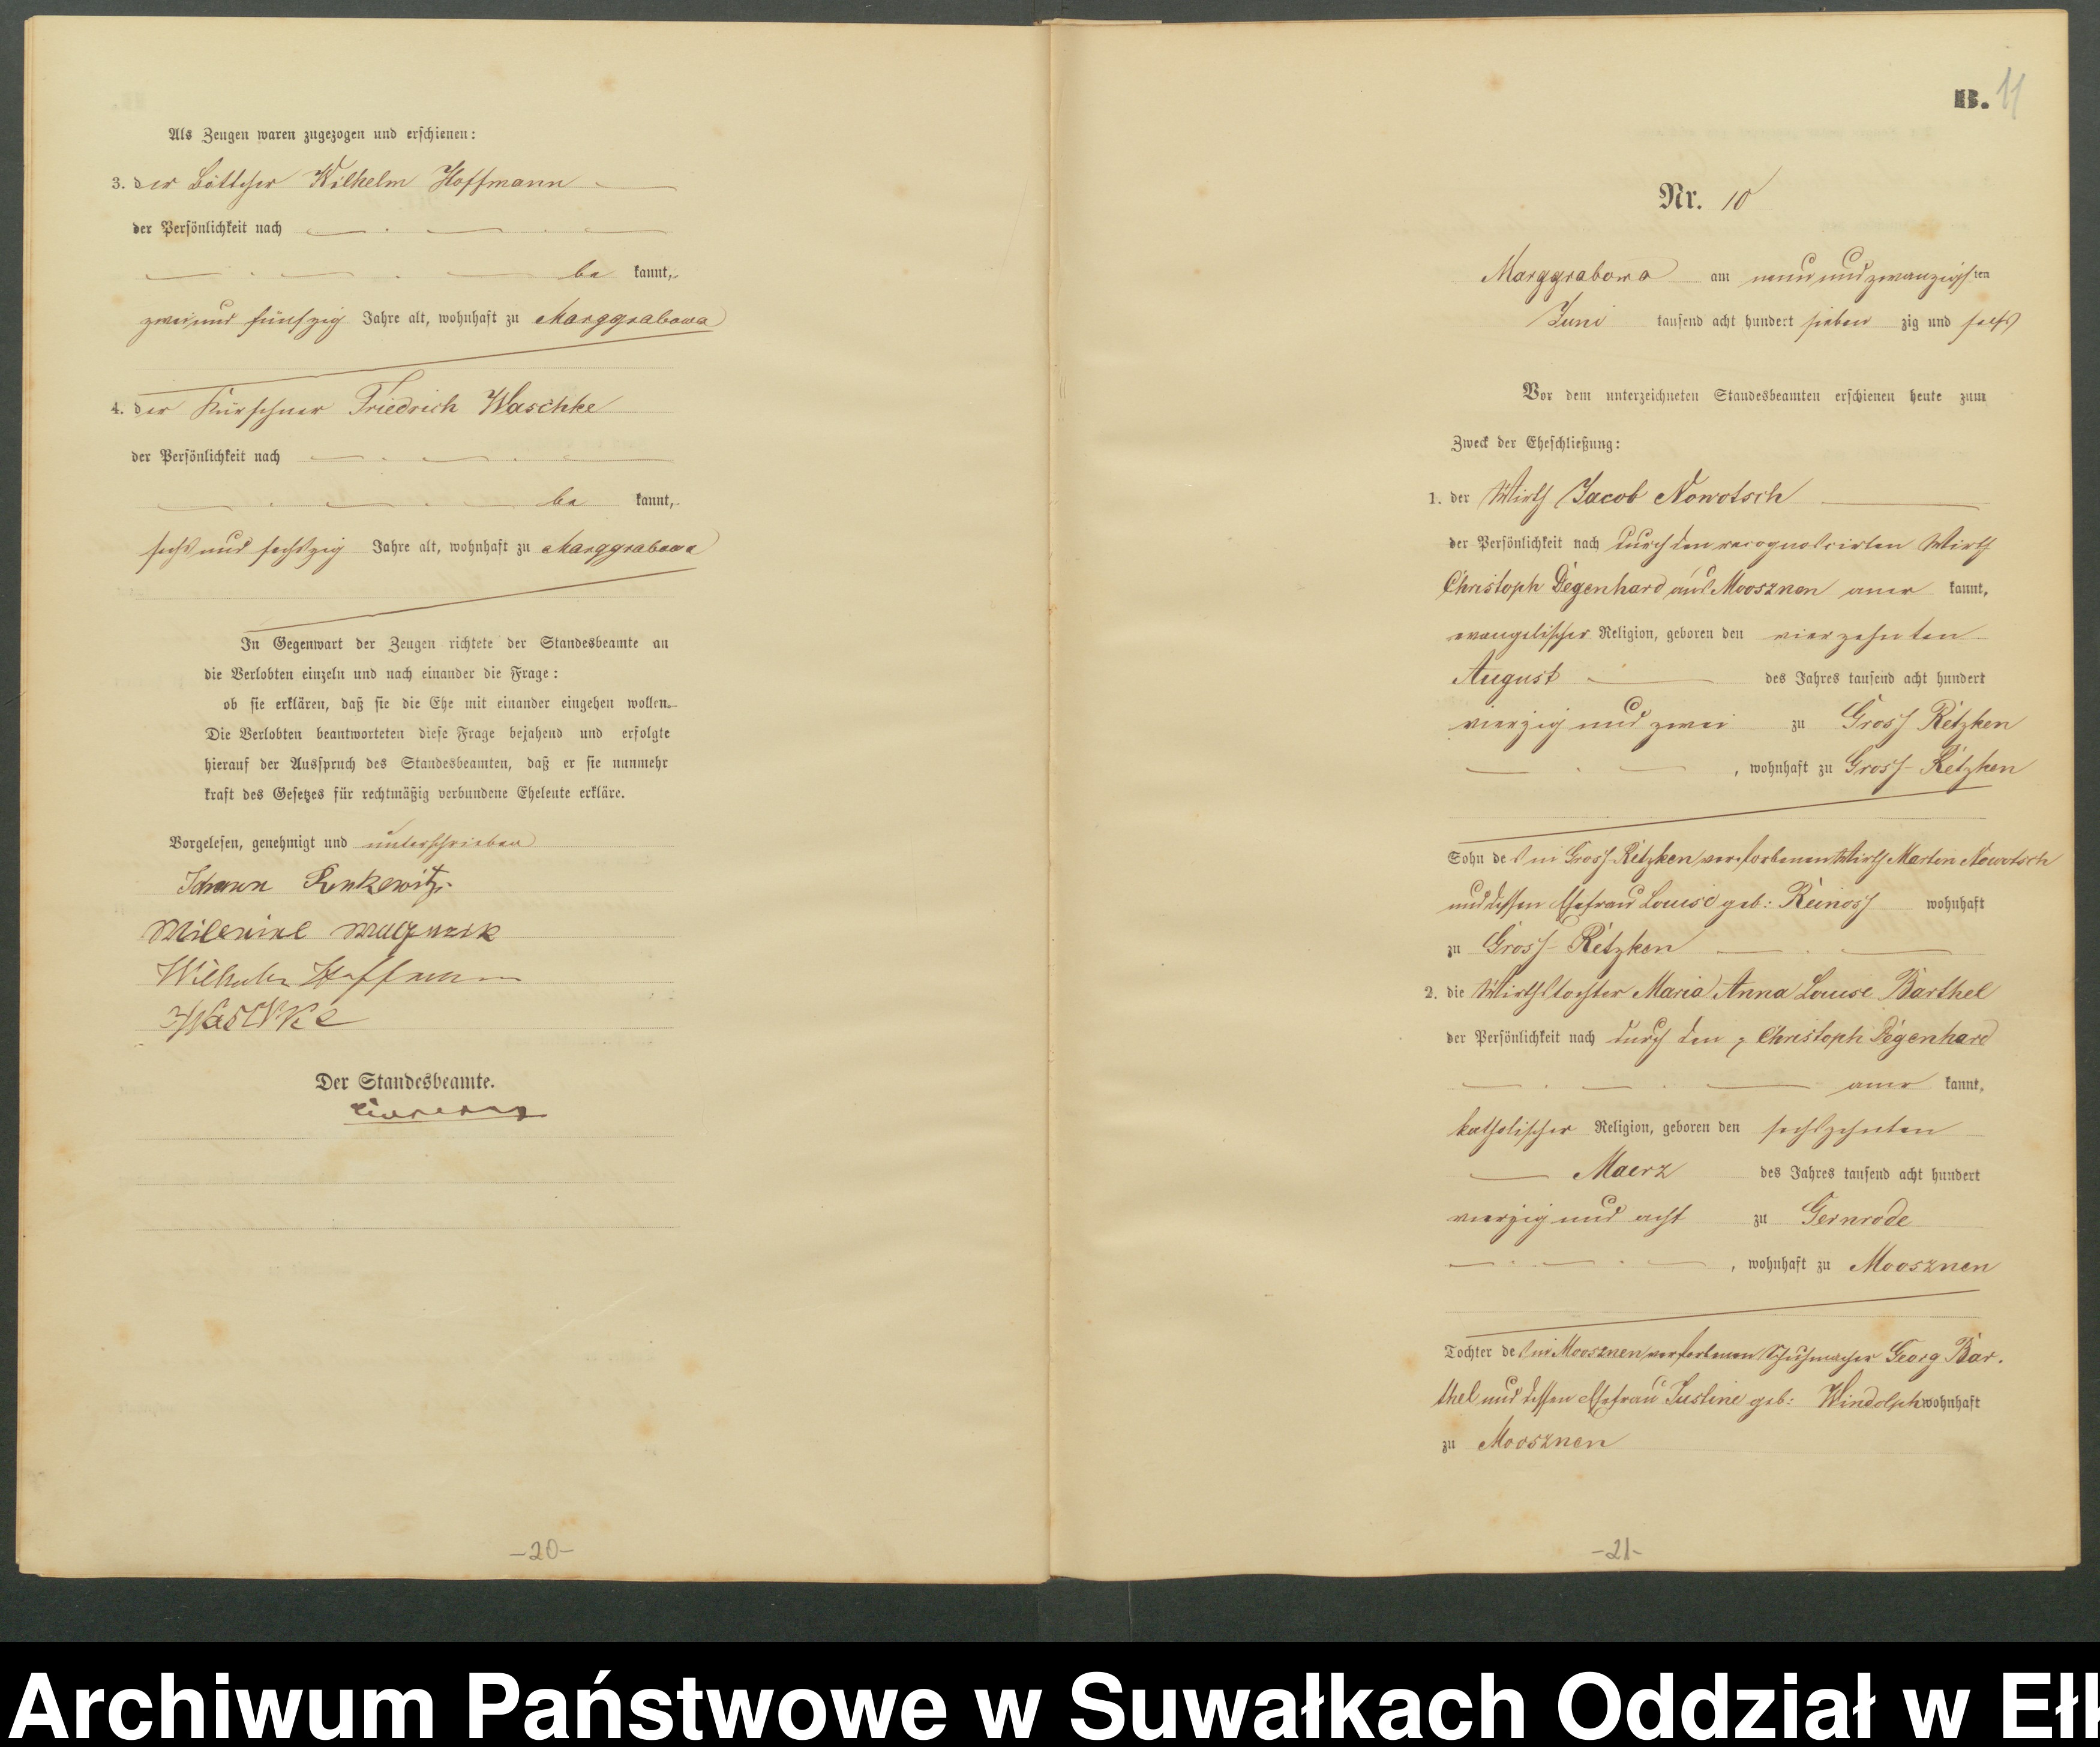 Als Zeugen waren zugezogen und erschienen:
3. der Böttcher Wilhelm Hoffmann
der Persönlichkeit nach
be kannt,
zwei und fünfzig Jahre alt, wohnhaft zu Marggrabowa
4. der Kürschner Friedrich Waschke
der Persönlichkeit nach
be kannt,
sechs und sechszig Jahre alt, wohnhaft zu Marggrabowa
In Gegenwart der Zeugen richtete der Standesbeamte an
die Verlobten einzeln und nach einander die Frage:
ob sie erklären, daß sie die Ehe mit einander eingehen wollen.
Die Verlobten beantworteten diese Frage bejahend und erfolgte
hierauf der Ausspruch des Standesbeamten, daß er sie nunmehr
kraft des Gesetzes für rechtmäßig verbundene Eheleute erkläre.
Vorgelesen, genehmigt und unterschrieben
Wilhelm Hoffmann
Der Standesbeamte.
-20-
B. 11
Nr. 10
Marggrabowa am neun und zwanzigsten
Juni tausend acht hundert sieben zig und sechs
Vor dem unterzeichneten Standesbeamten erschienen heute zum
Zweck der Eheschließung:
1. der Wirth Jacob Nowotsch
der Persönlichkeit nach durch den recognoscirten Wirth
Christoph Degenhard aus Moosznen aner kannt,
evangelischer Religion, geboren den vierzehnten
August des Jahres tausend acht hundert
vierzig und zwei zu Gross Retzken
, wohnhaft zu Gross-Retzken
Sohn des in Gross Retzken verstorbenen Wirth Martin Nowotsch
und dessen Ehefrau Louise geb: Reinoss wohnhaft
zu Gross-Retzken
2. die Wirthstochter Maria Anna Louise Barthel
der Persönlichkeit nach durch den p Christoph Degenhard
aner kannt,
katholischer Religion, geboren den sechszehnten
Maerz des Jahres tausend acht hundert
vierzig und acht zu Gernrode
, wohnhaft zu Moosznen
Tochter des in Moosznen verstorbenen Schuhmacher Georg Bar-
thel und dessen Ehefrau Justine geb: Windolph wohnhaft
zu Moosznen
-21-
Archiwum Państwowe w Suwałkach Oddział w Ełk